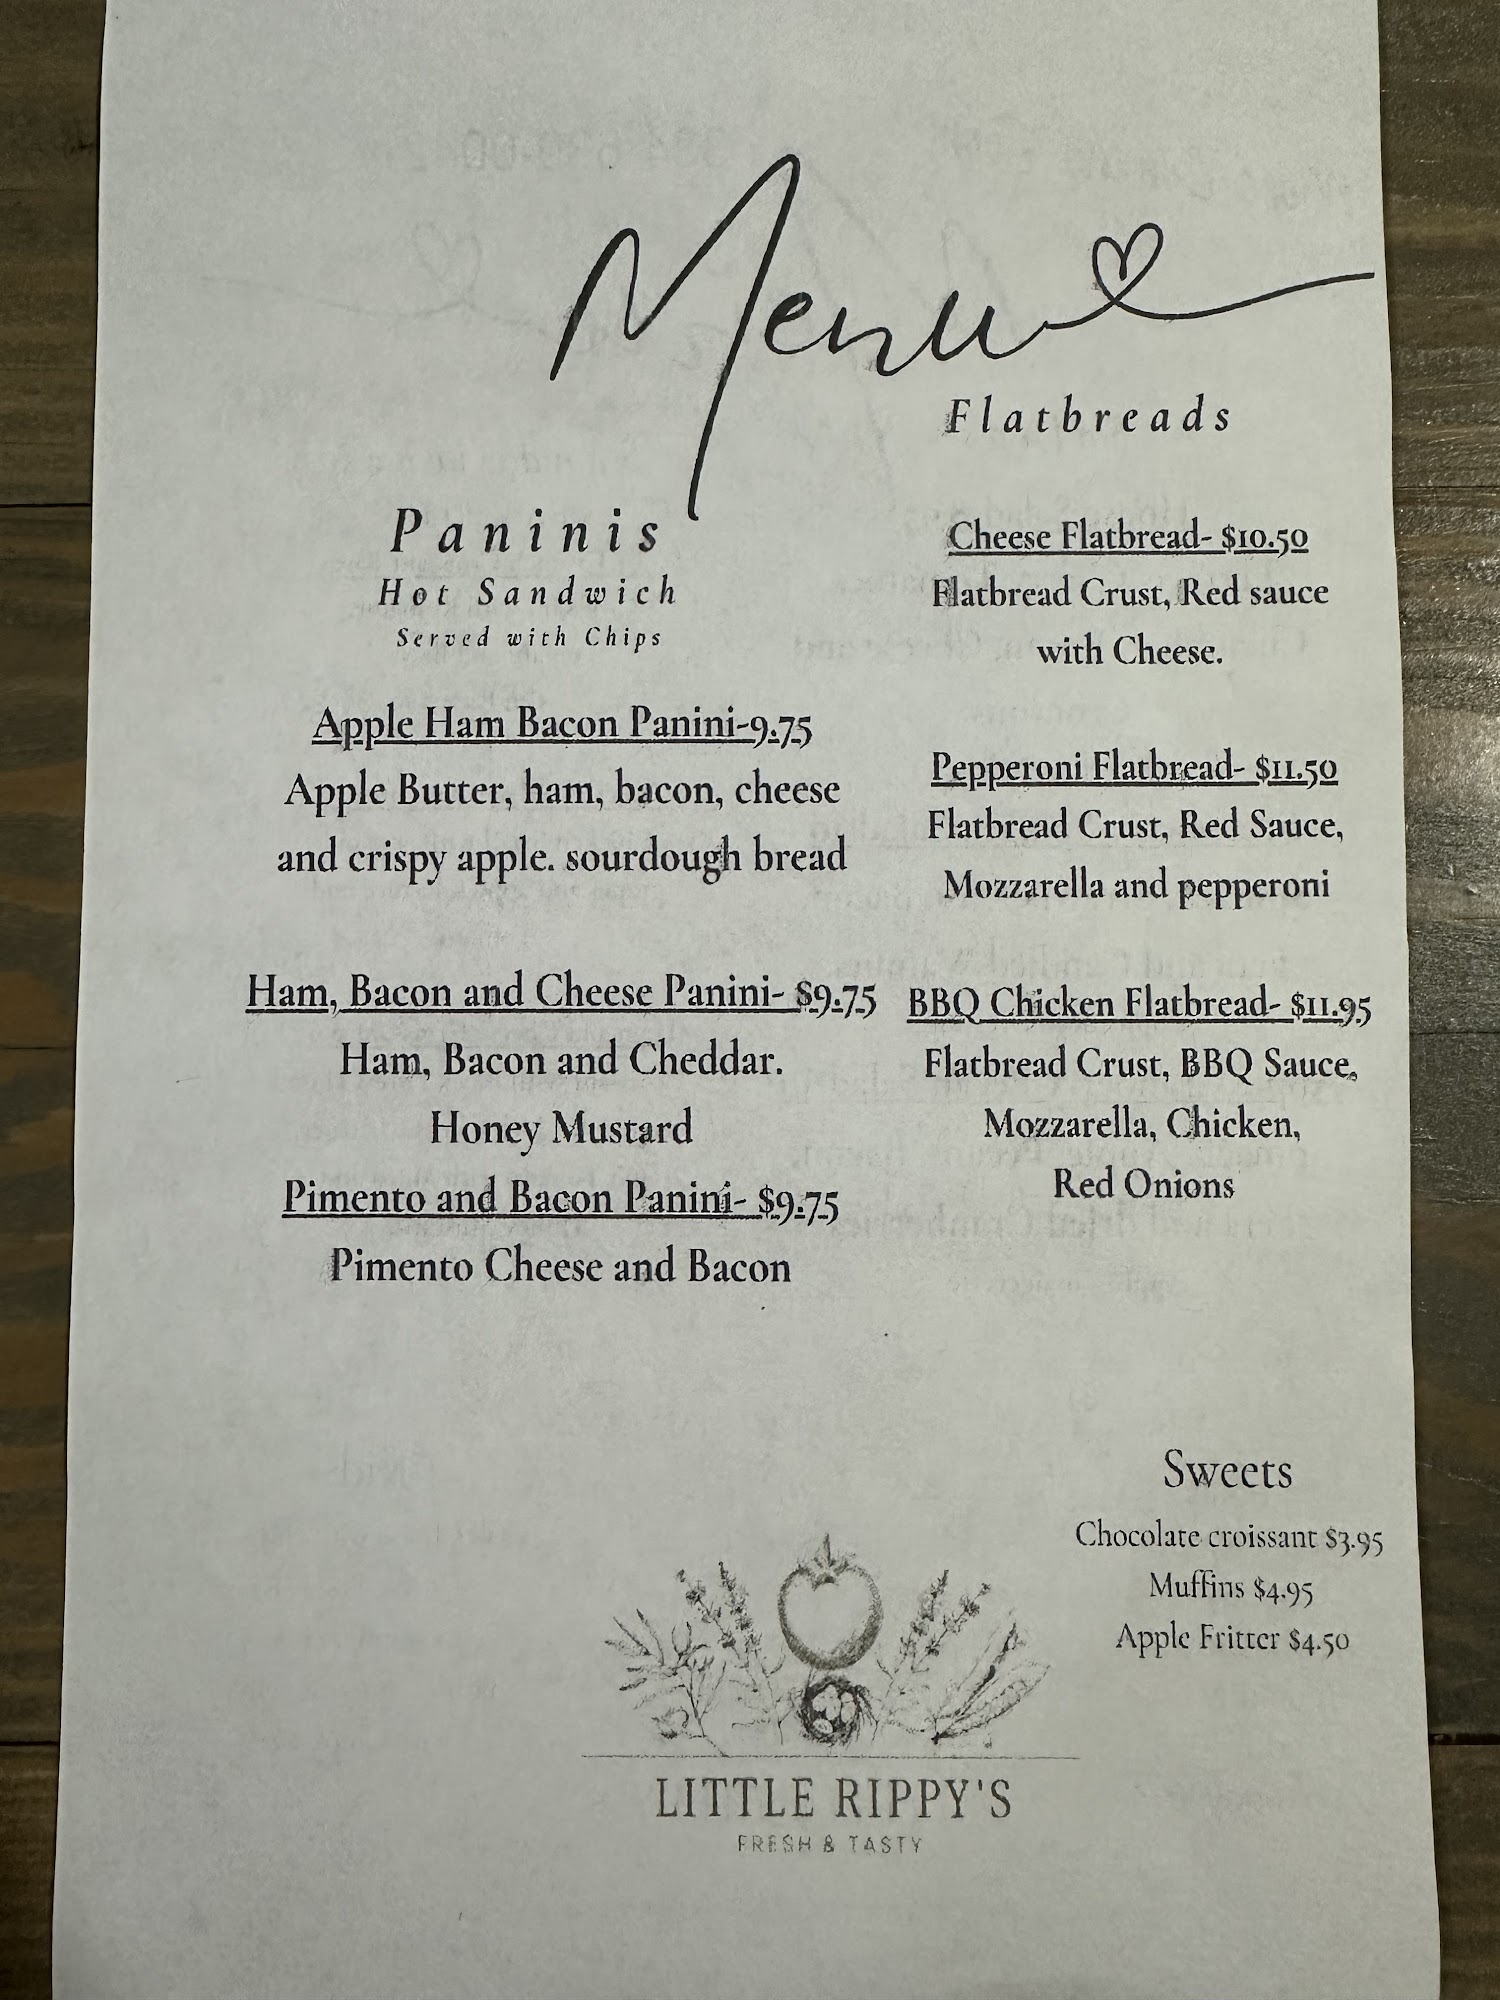 Menu
Paninis
Hot Sandwich
Served with Chips
Apple Ham Bacon Panini-9.75
Apple Butter, ham, bacon, cheese
and crispy apple. sourdough bread
Ham, Bacon and Cheese Panini- $9.75
Ham, Bacon and Cheddar.
Honey Mustard
Pimento and Bacon Panini- $9.75
Pimento Cheese and Bacon
Flatbreads
Cheese Flatbread- $10.50
Flatbread Crust, Red sauce
with Cheese.
Pepperoni Flatbread- $11.50
Flatbread Crust, Red Sauce,
Mozzarella and pepperoni
BBQ Chicken Flatbread- $11.95
Flatbread Crust, BBQ Sauce,
Mozzarella, Chicken,
Red Onions
Sweets
Chocolate croissant $3.95
Muffins $4.95
Apple Fritter $4.50
LITTLE RIPPY'S
FRESH & TASTY